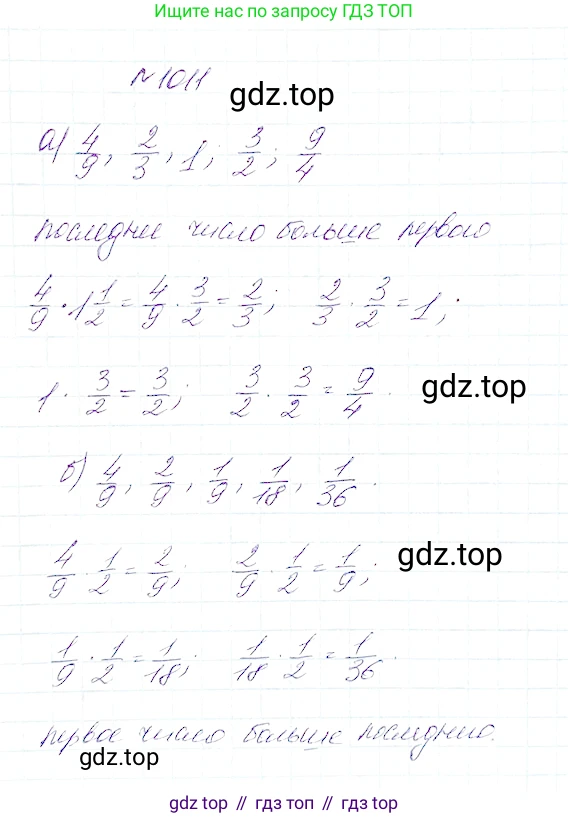 Ищите нас по запросу ГДЗ ТОП
№1011
gdz.top
а) 4/9, 2/3, 1; 3/2; 9/4
последнее число больше первого
4/9 · 1 1/2 = 4/9 · 3/2 = 2/3; 2/3 · 3/2 = 1;
1 · 3/2 = 3/2; 3/2 · 3/2 = 9/4.
gdz.top
б) 4/9, 2/9, 1/9, 1/18, 1/36.
4/9 · 1/2 = 2/9; 2/9 · 1/2 = 1/9;
gdz.top
1/9 · 1/2 = 1/18; 1/18 · 1/2 = 1/36.
первое число больше последнего.
gdz.top
gdz top // гдз топ // гдз top